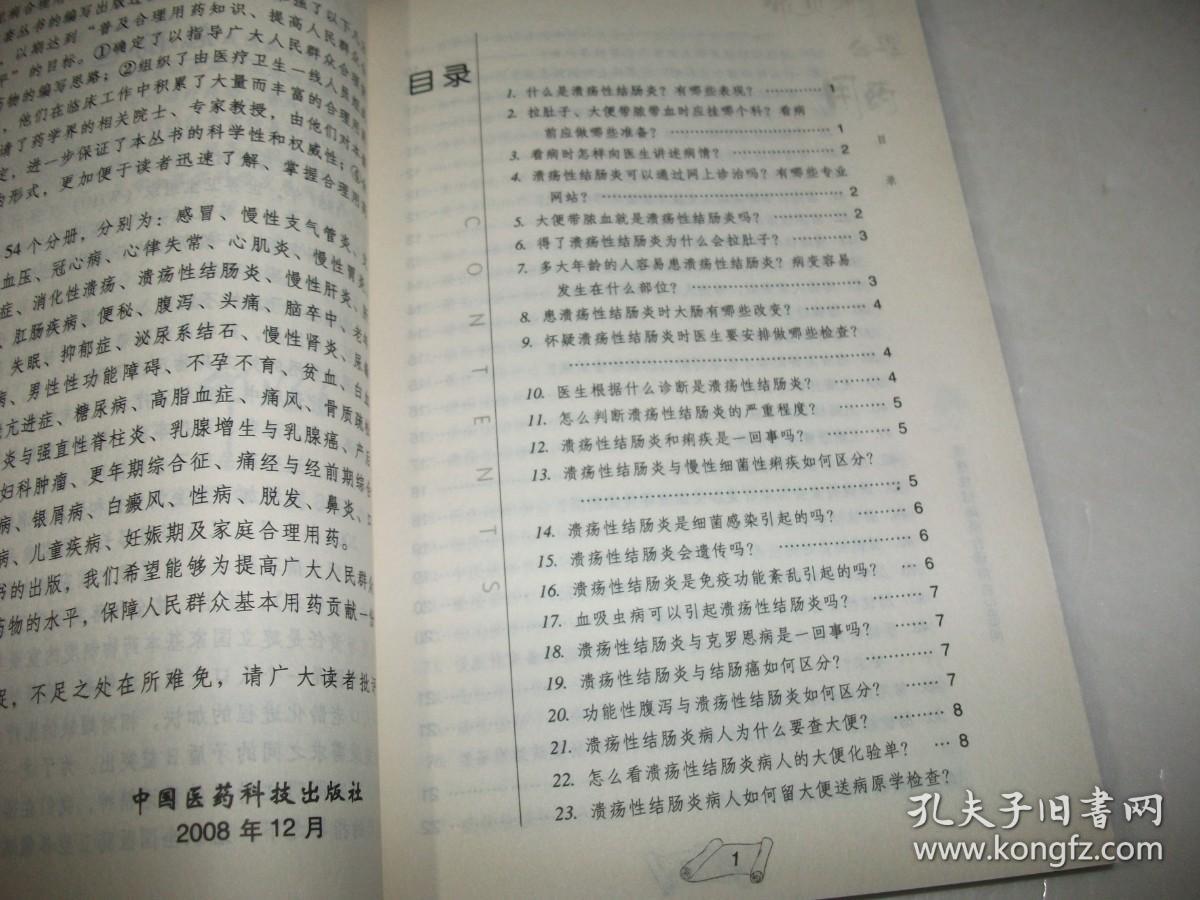 套丛书的编写出版过
，以期达到“普及合理用药知识、提高人民群众
平”的目标。①确定了以指导广大人民群众合理
药物的编写思路；②组织了由医疗卫生一线人员
，他们在临床工作中积累了大量而丰富的合理用
请了药学界的相关院士、专家教授，由他们对本
定，进一步保证了本丛书的科学性和权威性；
的形式，更加便于读者迅速了解、掌握合理用
54个分册，分别为：感冒、慢性支气管炎、
血压、冠心病、心律失常、心肌炎、慢性胃炎
症、消化性溃疡、溃疡性结肠炎、慢性肝炎、
、肛肠疾病、便秘、腹泻、头痛、脑卒中、老
、失眠、抑郁症、泌尿系结石、慢性肾炎、尿
病、男性性功能障碍、不孕不育、贫血、白血
亢进症、糖尿病、高脂血症、痛风、骨质疏松
炎与强直性脊柱炎、乳腺增生与乳腺癌、产后
妇科肿瘤、更年期综合征、痛经与经前期综合
病、银屑病、白癜风、性病、脱发、鼻炎、
病、儿童疾病、妊娠期及家庭合理用药。
书的出版，我们希望能够为提高广大人民群众
药物的水平，保障人民群众基本用药贡献一份
促，不足之处在所难免，请广大读者批评
中国医药科技出版社
2008年12月
目录
CONTENTS
目 录
1. 什么是溃疡性结肠炎？有哪些表现？ ………… 1
2. 拉肚子、大便带脓带血时应挂哪个科？看病
前应做哪些准备？ ………………………… 1
3. 看病时怎样向医生讲述病情？ ……………… 2
4. 溃疡性结肠炎可以通过网上诊治吗？有哪些专业
网站？ …………………………………… 2
5. 大便带脓血就是溃疡性结肠炎吗？ ………… 2
6. 得了溃疡性结肠炎为什么会拉肚子？ ……… 3
7. 多大年龄的人容易患溃疡性结肠炎？病变容易
发生在什么部位？ ………………………… 3
8. 患溃疡性结肠炎时大肠有哪些改变？ ……… 4
9. 怀疑溃疡性结肠炎时医生要安排做哪些检查？
……………………………………………… 4
10. 医生根据什么诊断是溃疡性结肠炎？ ……… 4
11. 怎么判断溃疡性结肠炎的严重程度？ ……… 5
12. 溃疡性结肠炎和痢疾是一回事吗？ ………… 5
13. 溃疡性结肠炎与慢性细菌性痢疾如何区分？
……………………………………………… 5
14. 溃疡性结肠炎是细菌感染引起的吗？ ……… 6
15. 溃疡性结肠炎会遗传吗？ …………………… 6
16. 溃疡性结肠炎是免疫功能紊乱引起的吗？ …… 6
17. 血吸虫病可以引起溃疡性结肠炎吗？ ……… 7
18. 溃疡性结肠炎与克罗恩病是一回事吗？ …… 7
19. 溃疡性结肠炎与结肠癌如何区分？ ………… 7
20. 功能性腹泻与溃疡性结肠炎如何区分？ …… 7
21. 溃疡性结肠炎病人为什么要查大便？ ……… 8
22. 怎么看溃疡性结肠炎病人的大便化验单？ … 8
23. 溃疡性结肠炎病人如何留大便送病原学检查？
1
孔夫子旧书网
www.kongfz.com